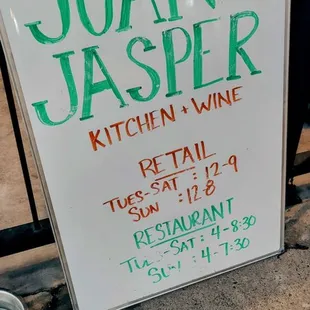 JUAN
JASPER
KITCHEN + WINE
RETAIL
TUES-SAT : 12-9
SUN : 12-8
RESTAURANT
-SAT : 4-8:30
: 4-7:30